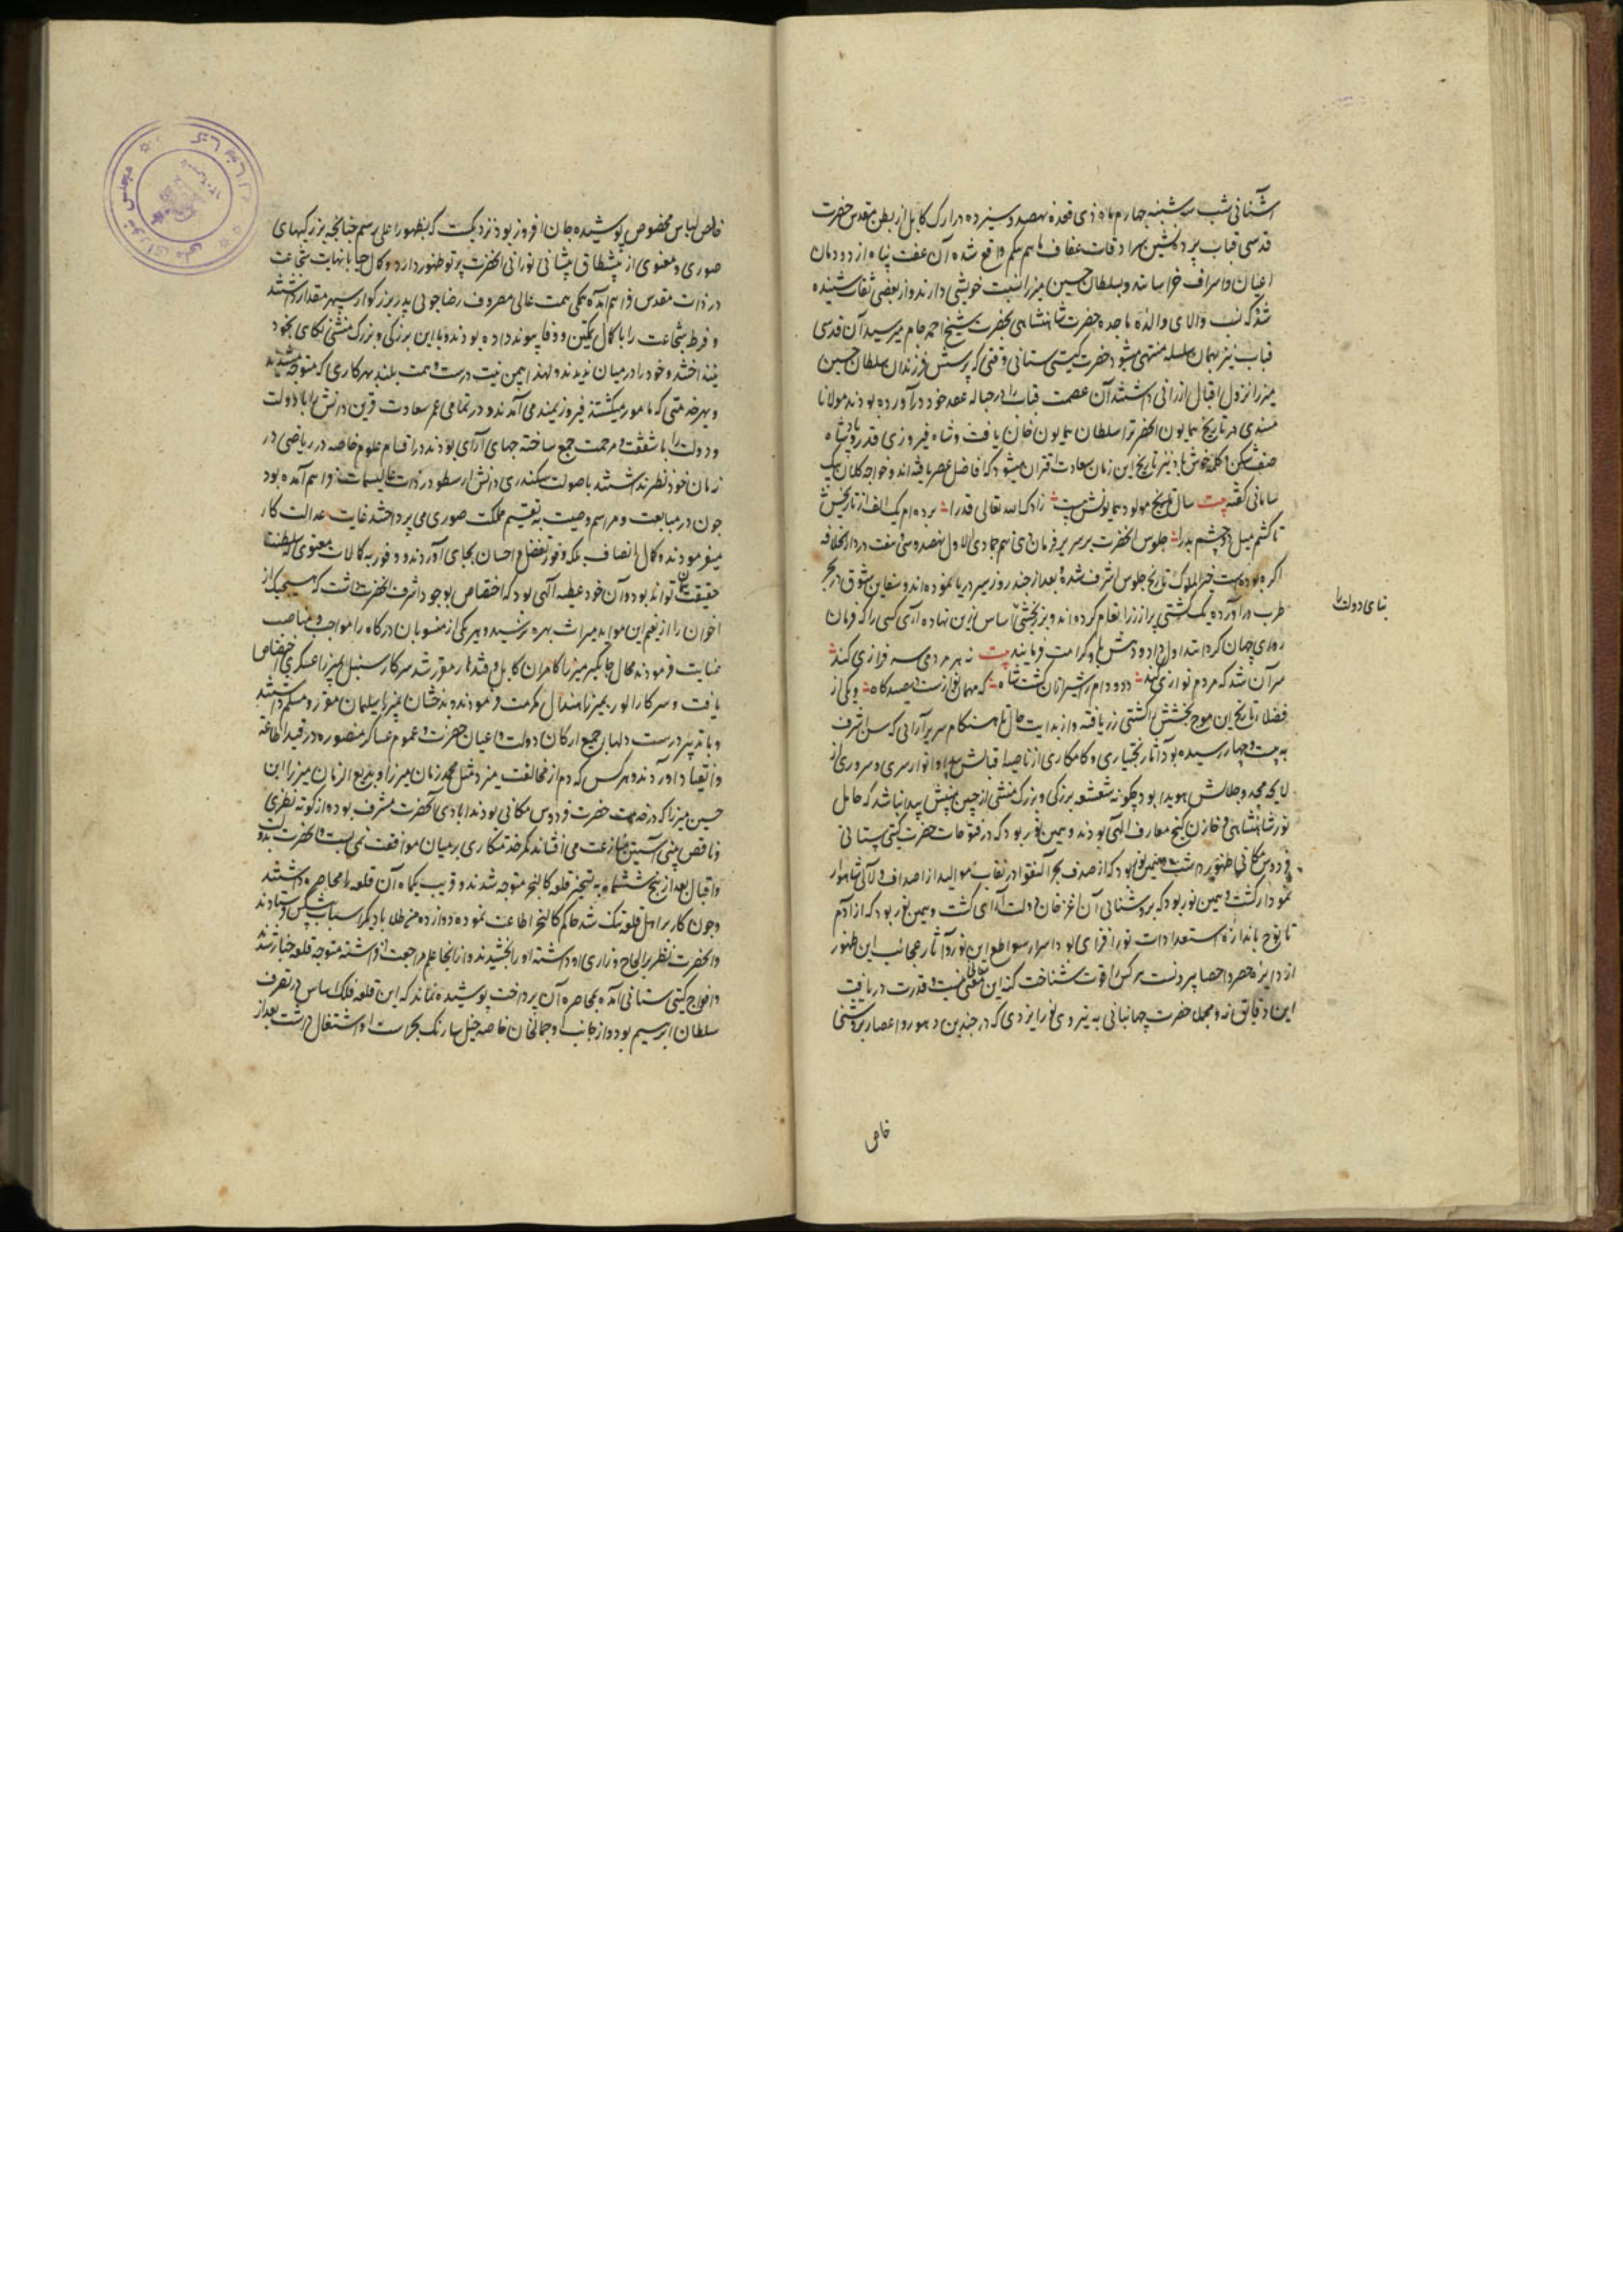 آشنائی شب سه شنبه چهارم ماه ذی قعده نهصد و سیزده در ارک کابل از بطن مقدس حضرت
قدسی قباب پرده نشین سرادقات عفاف ماهم بیگم واقع شده آن عفت پناه از دودمان
اعیان و اشراف خراسانند و بسلطان حسین میرزا نسبت خویشی دارند و از بعضی ثقات شنیده
شد که نسب والای والده ماجده حضرت شاهنشاهی بحضرت شیخ احمد جام میرسید آن قدسی
قباب نیز بهمان سلسله منتهی میشود حضرت گیتی ستانی وقتی که پرسش فرزندان سلطان حسین
میرزا نزول اقبال ارزانی داشتند آن عصمت قباب را در حباله عقد خود درآورده بودند مولانا
مسندی در تاریخ همایون آنحضرترا سلطان همایون خان یافت و شاه فیروزی قدر و پادشاه
صف شکن و کلمه خوش باد نیز تاریخ این زمان سعادت اقتران میشود که افاضل عصر یافته اند و خواجه کلان بیک
سامانی گفته بیت سال تاریخ مولود همایونش هست زادک الله تعالی قدرا برده ام یک الف از تاریخش
تا کشم میل دو چشم بدرا جلوس آنحضرت بر سریر فرمان دهی نهم جمادی الاول نهصد و سی و هفت در دارالخلافه
اکره بوده است خیر الملوک تاریخ جلوس اشرف شده بعد از چند روز سیر دریا نموده اند و سفاین شوق در بحر
طرب درآورده یک کشتی پر از زر انعام کرده اند و بزر بخشی اساس زرین نهاده آری کسی را که فرمان
روای جهان گردانند اول داد و دهش کرامت فرمایند بیت نه هر مردمی سرفرازی کند
سر آن شد که مردم نوازی کند دد و دام را شیر ازان گشت شاه که مهمان نوازست در صیدگاه و یکی از
فضلا تاریخ این موج بخشش را کشتی زر یافته و از بدایت حال تا هنگام سریر آرائی که سن اشرف
به بیست و چهار رسیده بود آثار بختیاری و کامکاری از ناصیه اقبالش پیدا و انوار سری و سروری از
لایحه مجد و جلالش هویدا بود چگونه شعشعه بزرگی و بزرگ منشی از جبین مبینش پیدا نباشد که حامل
نور شاهنشاهی و خازن گنج معارف الهی بودند و همین نور بود که در فتوحات حضرت گیتی ستانی
فردوس مکانی ظهور داشت و همین نور بود که از صدف بحر آلنقوا در نقاب موالید از اصداف لآلی شاهوار
نمودار گشت و همین نور بود که بروشنائی آن اغزخان دولت آرای گشت و همین نور بود که از آدم
تا نوح باندازه استعدادات نور افزای بود اسرار سواطع این نور و آثار عجائب این ظهور
از دایره حصر و احصا بیرونست هر کس را قوت شناخت کنه این معنی نیست و قدرت دریافت
این دقایق نه و مجمل حضرت جهانبانی به نیروی نور ایزدی که در چندین دهور و اعصار بروشنی
خاص
بنای دولت را
خاص لباس مخصوص پوشیده جهان افروز بود نزدیکست که بظهور اعلی رسم چنانچه بزرگیهای
صوری و معنوی از پیشطاق پیشانی نورانی آنحضرت پرتو ظهور دارد و کمال حیا با نهایت شجاعت
در ذات مقدس فراهم آمده همگی همت عالی مصروف رضاجوئی پدر بزرگوار سپهر مقدار داشتند
و فرط شجاعت را با کمال تمکین و وفا پیوند داده بودند و با این بزرگی و بزرگ منشی نگاهی بخود
نینداختند و خود را در میان ندیدند و لهذا بیمن نیت درست و همت بلند بهر کاری که متوجه میشدند
و بهر خدمتی که مامور میگشتند فیروزیمند می آمدند و در تمامی عمر سعادت قرین دانش را با دولت
و دولت را با شفقت و مرحمت جمع ساخته جهان آرای بودند در اقسام علوم خاصه در ریاضی در
زمان خود نظیر نداشتند با صولت سکندری دانش ارسطو در ذات عالی سمات فراهم آمده بود
چون در مبایعت و مراسم وصیت به تقسیم مملکت صوری می پرداختند غایت عدالت کار
میفرمودند و کمال انصاف بلکه وفور تفضل و احسان بجای آوردند و وفور به کمالات معنوی که سلطنت
حقیقت آن تواند بود و آن خود عطیه الهی بود که اختصاص بوجود اشرف آنحضرت داشت که هیچیک از
اخوان را از نعم این موائد میراث بهره نرسید و هر یکی از منسوبان درگاه را مواجب و مناصب
عنایت فرمودند محال جاگیر میرزا کامران کابل و قندهار مقرر شد سرکار سنبل بمیرزا عسکری اختصاص
یافت و سرکار الور بمیرزا هندال مکرمت فرمودند و بدخشان بمیرزا سلیمان مقرر و مسلم داشتند
و با تدبیر درست دلهای جمیع ارکان دولت و اعیان حضرت و عموم عساکر منصوره در قید اطاعت
و انقیاد آوردند و هر کس که دم از مخالفت میزد مثل محمد زمان میرزا ولد بدیع الزمان میرزا ابن
حسین میرزا که در خدمت حضرت فردوس مکانی بودند و بدامادی آنحضرت مشرف بوده از کوته نظری
و ناقص بینی آستین منازعت می افشاند کمر خدمتکاری بر میان موافقت نمی بست و آنحضرت بدولت
و اقبال بعد از پنج شش ماه به تسخیر قلعه کالنجر متوجه شدند و قریب یکماه آن قلعه را محاصره داشتند
و چون کار بر اهل قلعه تنگ شد حاکم کالنجر اطاعت نموده دوازده من طلا با دیگر اسباب پیشکش فرستادند
و آنحضرت نظر بر الحاح و زاری او داشته او را بخشیدند و از انجا علم مراجعت افراشته متوجه قلعه چناره شدند
و افواج گیتی ستانی آمده بمحاصره آن پرداخت پوشیده نماند که این قلعه فلک اساس در تصرف
سلطان ابراهیم بود و از جانب او جمالخان خاصه خیل سارنگ بحراست او اشتغال داشت بعد از